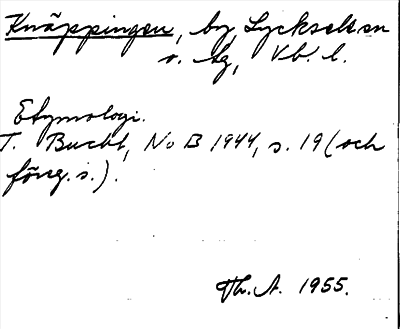 Knäppingen, by, Lycksele sn
o. tg, Vb. l.
Etymologi.
T. Bucht, No B 1944, s. 19 (och
föreg. s.).
Th. A. 1955.